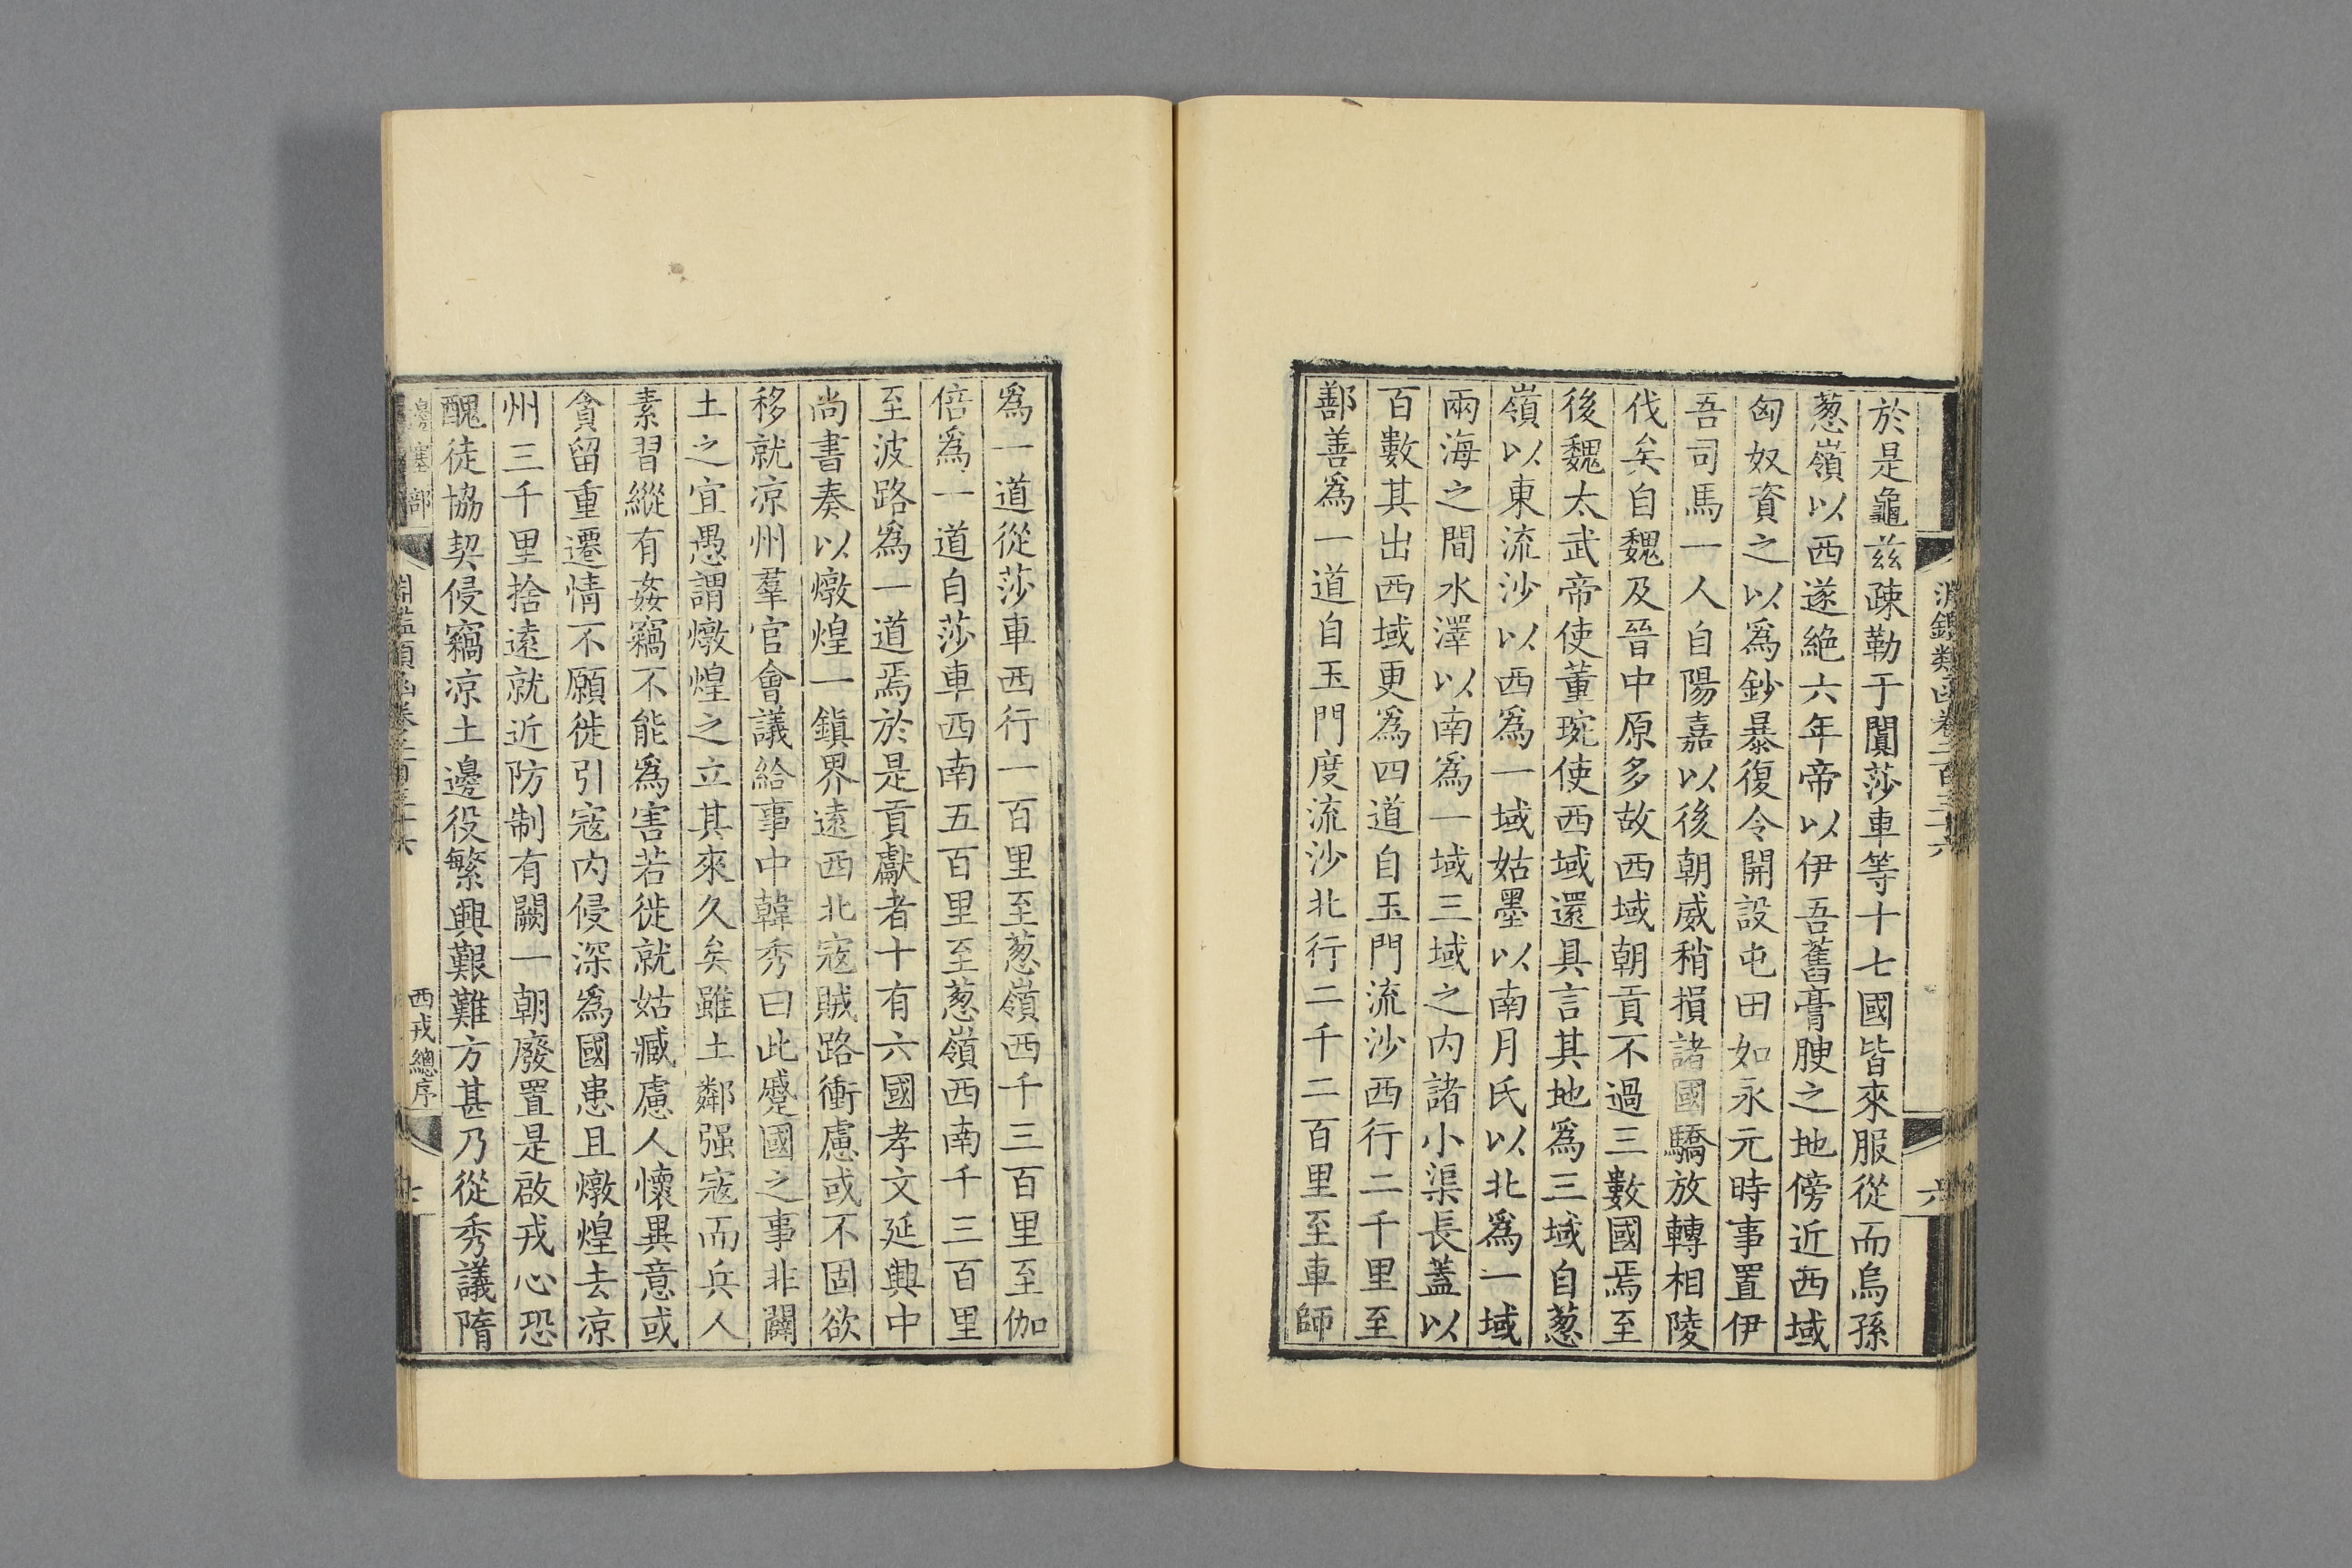 於是龜玆疎勒于闐莎車等十七國皆來服從而烏孫
葱嶺以西遂絶六年帝以伊吾舊膏腴之地傍近西域
匈奴資之以爲鈔暴復令開設屯田如永元時事置伊
吾司馬一人自陽嘉以後朝威稍損諸國驕放轉相陵
伐矣自魏及晉中原多故西域朝貢不過三數國焉至
後魏太武帝使董琬使西域還具言其地爲三域自葱
嶺以東流沙以西爲一域姑墨以南月氏以北爲一域
兩海之間水澤以南爲一域三域之内諸小渠長蓋以
百數其出西域更爲四道自玉門流沙西行二千里至
鄯善爲一道自玉門度流沙北行二千二百里至車師
爲一道從莎車西行一百里至葱嶺西千三百里至伽
倍爲一道自莎車西南五百里至葱嶺西南千三百里
至波路爲一道焉於是貢獻者十有六國孝文延興中
尚書奏以燉煌一鎭界遠西北寇賊路衝慮或不固欲
移就凉州羣官會議給事中韓秀曰此蹙國之事非闢
土之宜愚謂燉煌之立其來久矣雖土鄰强寇而兵人
素習縱有姦竊不能爲害若徙就姑臧慮人懷異意或
貪留重遷情不願徙引寇内侵深爲國患且燉煌去凉
州三千里捨遠就近防制有闕一朝廢置是啟戎心恐
醜徒協契侵竊凉土邊役繁興艱難方甚乃從秀議隋
邊塞部
西戎總序